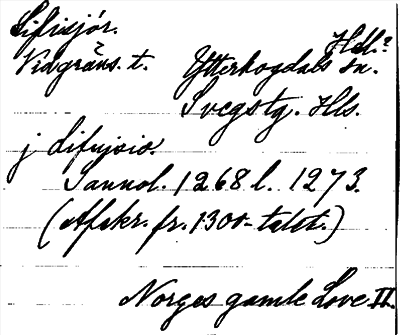 Lifisjór.
Vid gräns. t. Ytterhogdals sn. Hdl.?
Svegs tg. Hls.
j Lifujsio.
Sannol. 1268 l. 1273.
(Afskr. fr. 1300-talet.)
Norges gamle Love II.